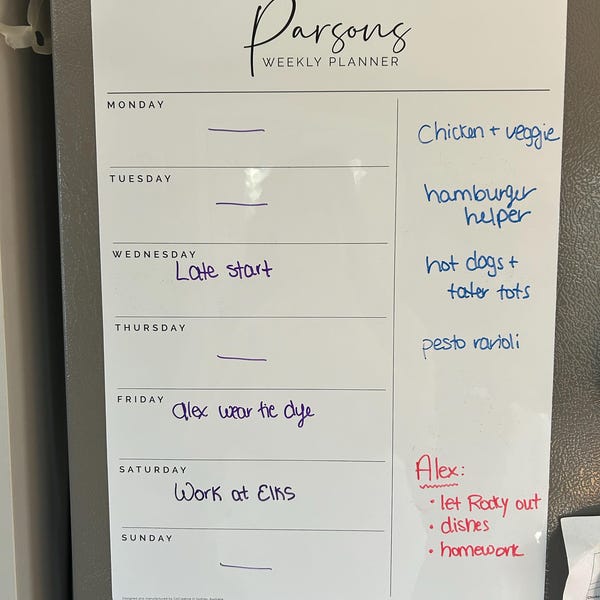 Parsons
WEEKLY PLANNER
MONDAY
Chicken + veggie
TUESDAY
hamburger
helper
WEDNESDAY
Late start
hot dogs +
tater tots
THURSDAY
pesto ravioli
FRIDAY
Alex wear tie dye
SATURDAY
Work at Elks
SUNDAY
Alex:
• let Rocky out
• dishes
• homework